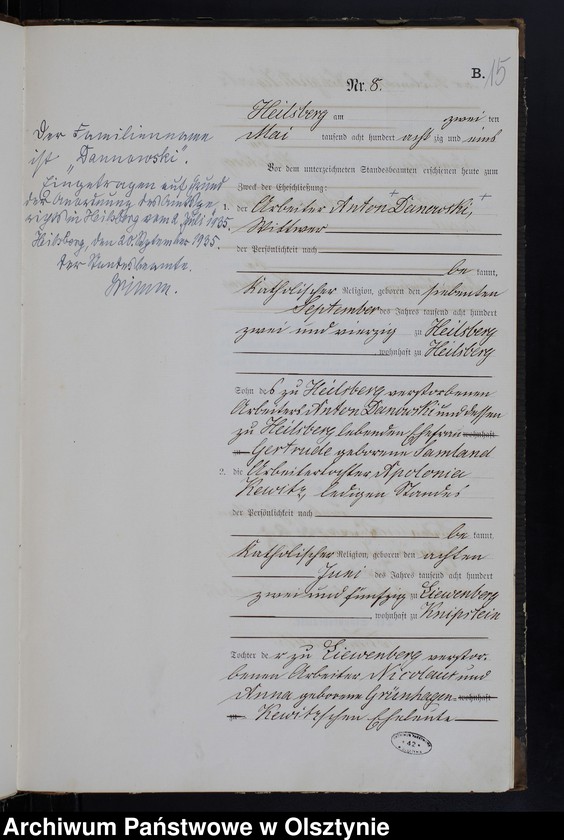 B. 15
Nr. 8.
Heilsberg am zwei ten
Mai tausend acht hundert acht zig und eins
Vor dem unterzeichneten Standesbeamten erschienen heute zum
Zweck der Eheschließung:
1. der Arbeiter Anton Danowski,
Wittwer
der Persönlichkeit nach
be kannt,
Katholischer Religion, geboren den siebenten
September des Jahres tausend acht hundert
zwei und vierzig zu Heilsberg
, wohnhaft zu Heilsberg
Sohn des zu Heilsberg verstorbenen
Arbeiters Anton Danowski und dessen
zu Heilsberg lebenden Ehefrau wohnhaft
zu Gertrude geborene Samland
2. die Arbeitertochter Apolonia
Kewitz, ledigen Standes
der Persönlichkeit nach
be kannt,
Katholischer Religion, geboren den achten
Juni des Jahres tausend acht hundert
zwei und fünfzig zu Liewenberg
, wohnhaft zu Knipstein
Tochter der zu Liewenberg verstor-
benen Arbeiter Nicolaus und
Anna geborene Grünhagen- wohnhaft
zu Kewitz'schen Eheleute
Der Familienname
ist „Dannowski".
Eingetragen auf Grund
der Anordnung des Amtsge-
richts in Heilsberg vom 2. Juli 1935.
Heilsberg, den 20. September 1935.
Der Standesbeamte.
42
Archiwum Państwowe w Olsztynie